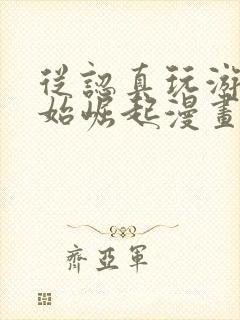 從認真玩游
始崛起漫畫
齊亞軍